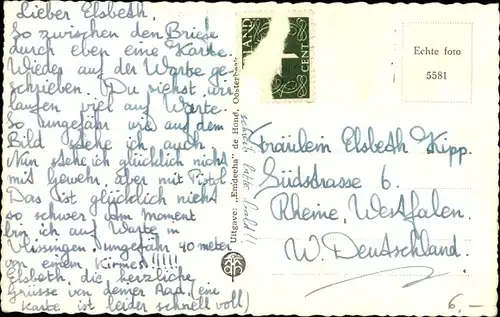 Lieber Elsbeth,
So zwischen den Briefe
durch eben eine Karte.
Wieder auf der Warbe ge-
schrieben. Du siehst wir
laufen viel auf Warte.
So ungefähr wie auf dem
Bild stehe ich auch.
Nun stehe ich glücklich nicht
mit Gewehr aber mit Pistol
Das ist glücklich nicht
so schwer. Im moment
bin ich auf Warte in
Vlissingen. Ungefähr 40 meter
von einem Kirmes!!!!!
Elsbeth, die herzliche
Grüsse von deiner Aad. (eine
Karte ist leider schnell voll)
Uitgave: „Emdeeha" de Hond, Oosterbeek
schreib bitte bald!!
LAND
1
CENT
Echte foto
5581
Fräulein Elsbeth Kipp.
Südstrasse 6.
Rheine, Westfalen.
W. Deutschland.
6,-